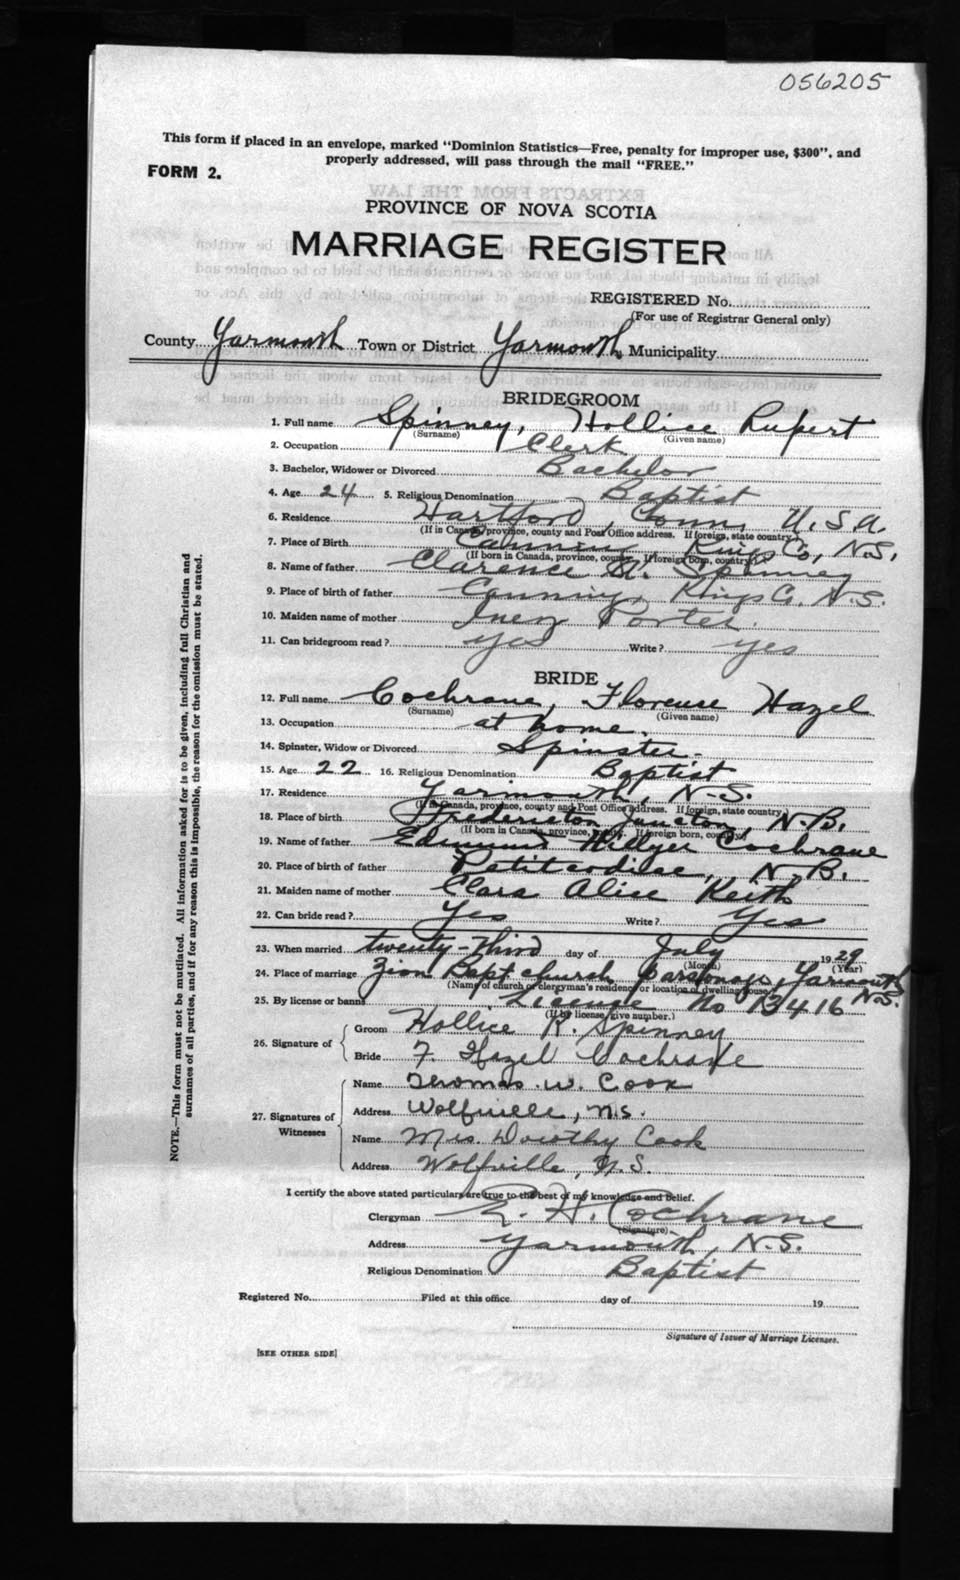 056205
This form if placed in an envelope, marked "Dominion Statistics—Free, penalty for improper use, $300", and
properly addressed, will pass through the mail "FREE."
FORM 2.
PROVINCE OF NOVA SCOTIA
MARRIAGE REGISTER
REGISTERED No.
(For use of Registrar General only)
County Yarmouth Town or District Yarmouth Municipality
BRIDEGROOM
1. Full name Spinney, Hollice Rupert
(Surname) (Given name)
2. Occupation Clerk
3. Bachelor, Widower or Divorced Bachelor
4. Age 24 5. Religious Denomination Baptist
6. Residence Hartford, Conn, U.S.A.
(If in Canada, province, county and Post Office address. If foreign, state country)
7. Place of Birth Canning Kings Co, N.S.
(If born in Canada, province, county. If foreign born, country)
8. Name of father Clarence A. Spinney
9. Place of birth of father Canning, Kings Co. N.S.
10. Maiden name of mother Inez Porter.
11. Can bridegroom read? yes Write? yes
BRIDE
12. Full name Cochrane, Florence Hazel
(Surname) (Given name)
13. Occupation at home.
14. Spinster, Widow or Divorced Spinster.
15. Age 22 16. Religious Denomination Baptist
17. Residence Yarmouth, N.S.
(If in Canada, province, county and Post Office address. If foreign, state country)
18. Place of birth Fredericton Junction, N.B.
(If born in Canada, province, county. If foreign born, country)
19. Name of father Edmund Hillyer Cochrane
20. Place of birth of father Petitcodiac, N.B.
21. Maiden name of mother Clara Alice Keith
22. Can bride read? Yes Write? Yes
23. When married twenty-third day of July 1929
(Month) (Year)
24. Place of marriage Zion Bapt church parsonage, Yarmouth
(Name of church or clergyman's residence or location of dwelling house) N.S.
25. By license or banns License No 13416
(If by license, give number.)
26. Signature of
Groom Hollice R. Spinney
Bride F. Hazel Cochrane
27. Signatures of Witnesses
Name Thomas W. Cook
Address Wolfville, N.S.
Name Mrs. Dorothy Cook
Address Wolfville, N.S.
I certify the above stated particulars are true to the best of my knowledge and belief.
Clergyman E. H. Cochrane
(Signature)
Address Yarmouth, N.S.
Religious Denomination Baptist
Registered No. Filed at this office day of 19
Signature of Issuer of Marriage Licenses.
[SEE OTHER SIDE]
NOTE.—This form must not be mutilated. All information asked for is to be given, including full Christian and
surnames of all parties, and if for any reason this is impossible, the reason for the omission must be stated.